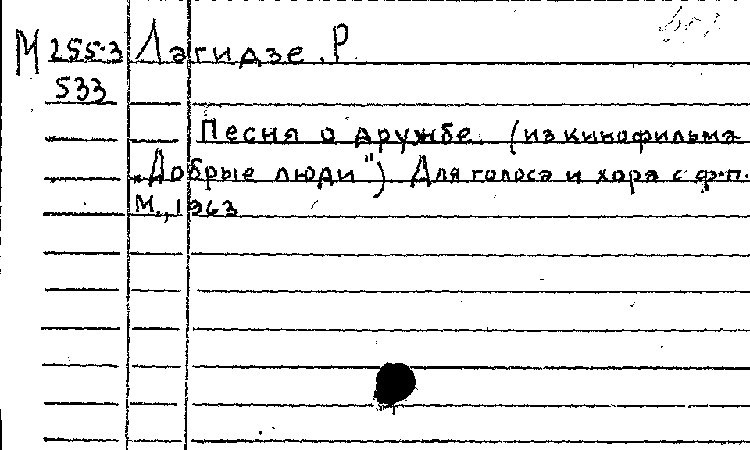 М 255-3 Лагидзе. Р.
533
Песня о дружбе. (из кинофильма
„Добрые люди") Для голоса и хора с ф-п.
М., 1963